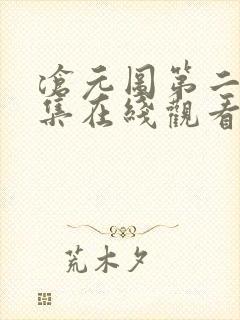 滄元圖第二
集在綫觀看
荒木夕